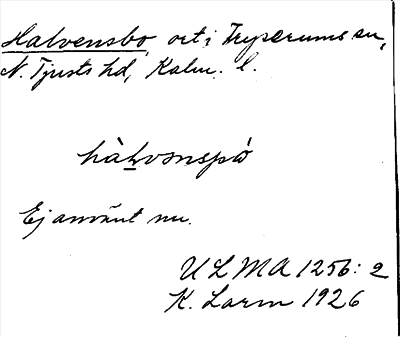 Halvensbo, ort i Tryserums sn,
N. Tjusts hd, Kalm. l.
hàḻvənspò
Ej använt nu.
ULMA 1256:2
K. Larm 1926